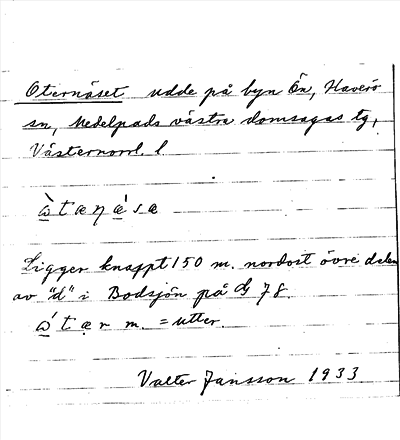 Oternäset udde på byn Ön, Haverö
sn, Medelpads västra domsagas tg,
Västernorrl. l
ὼtaŋǽsa
Ligger knappt 150 m. nordost övre delen
av "d" i Bodsjön på dj 78.
ώtạr m. = utter.
Valter Jansson 1933